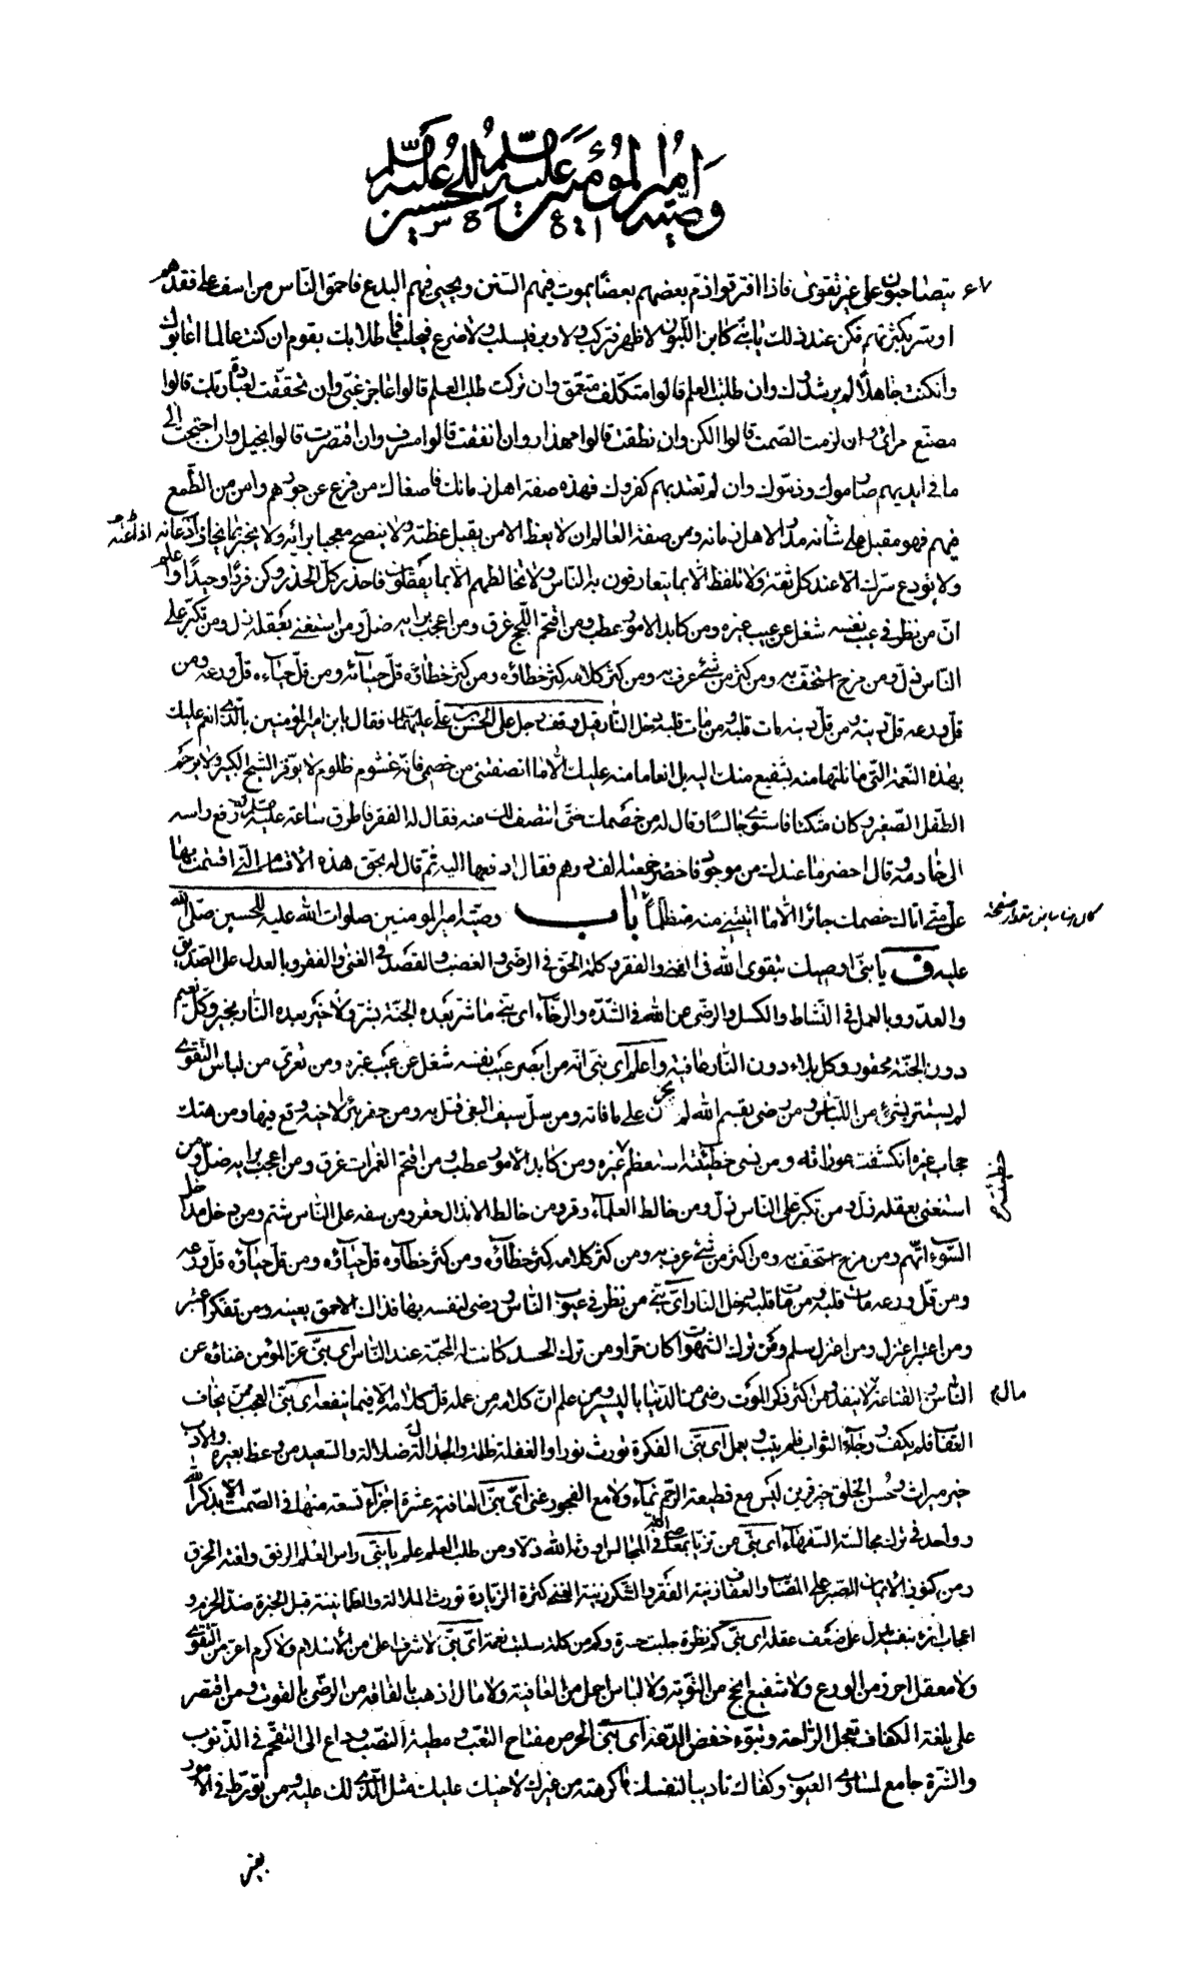 وصية امير المؤمنين عليه السلم للحسين عليه السلم
٦٧ يتصاحبون على غير تقوى فاذا افترقوا ذم بعضهم بعضا يموت فيهم السنن ويحيى فيهم البدع فاحمق الناس من اسف على فقدهم
او سر بكثرتهم فكن عند ذلك يا بنى كابن اللبون لا ظهر فتركب ولا وبر فيسلب ولا ضرع فيحلب فما طلابك بقوم ان كنت عالما اعابوك
وان كنت جاهلا لم يرشدوك وان طلبت العلم قالوا متكلف متعمق وان تركت طلب العلم قالوا عاجز غبى وان تحققت لعبادة ربك قالوا
متصنع مرائ وان لزمت الصمت قالوا الكن وان نطقت قالوا مهذار وان انفقت قالوا مسرف وان اقتصرت قالوا بخيل وان احتجت الى
ما فى ايديهم صارموك وذموك وان لم تعتد بهم كفروك فهذه صفة اهل زمانك فاصغاك من فزع عن جورهم وامن من الطمع
فيهم فهو مقبل على شانه مدار لاهل زمانه ومن صفة العالم ان لا يعظ الا من يقبل عظته ولا ينصح معجبا برايه ولا يخبر بما يخاف اذاعته
ولا تودع سرك الا عند كل ثقة ولا تلفظ الا بما يتعارفون به الناس ولا تخالطهم الا بما يعقلون فاحذر كل الحذر وكن فردا وحيدا واعلم
ان من نظر فى عيب نفسه شغل عن عيب غيره ومن كابد الامور عطب ومن اقتحم اللجج غرق ومن اعجب برايه ضل ومن استغنى بعقله زل ومن تكبر على
الناس ذل ومن مزح استخف به ومن كثر من شئ عرف به ومن كثر كلامه كثر خطاؤه ومن كثر خطاؤه قل حياؤه ومن قل حياءه قل ورعه ومن
قل ورعه قل دينه ومن قل دينه مات قلبه ومن مات قلبه دخل النار قيل وقف رجل على الحسن بن على عليهما فقال يا بن امير المؤمنين بالذى انعم عليك
بهذه النعمة التى ما نلتها منه بشفيع منك اليه بل انعاما منه عليك الا ما انصفتنى من خصمى فانه غشوم ظلوم لا يوقر الشيخ الكبير ولا يرحم
الطفل الصغير وكان متكئا فاستوى جالسا وقال له من خصمك حتى انتصف لك منه فقال له الفقر فاطرق ساعة عليه ثم رفع راسه
الى خادمه وقال احضر ما عندك من موجود فاحضر خمسة الف درهم فقال ادفعها اليه ثم قال له بحق هذه الاقسام التى اقسمت بها
على متى اتاك خصمك جائرا الا ما اتيتنى منه متظلما باب وصية امير المومنين صلوات الله عليه للحسين صلى الله
عليه ف يا بنى اوصيك بتقوى الله فى الغنى والفقر وكلمة الحق فى الرضى والغضب والقصد فى الغنى والفقر وبالعدل على الصديق
والعدو وبالعمل فى النشاط والكسل والرضى عن الله فى الشدة والرخاء اى بنى ما شر بعده الجنة بشر ولا خير بعده النار بخير وكل نعيم
دون الجنة محقور وكل بلاء دون النار عافية واعلم اى بنى انه من ابصر عيب نفسه شغل عن عيب غيره ومن تعرى من لباس التقوى
لم يستتر بشئ من اللباس ومن رضى بقسم الله لم يحزن على ما فاته ومن سل سيف البغى قتل به ومن حفر بئرا لاخيه وقع فيها ومن هتك
حجاب غيره انكشفت عوراته ومن نسى خطيئته استعظم غيره ومن كابد الامور عطب ومن اقتحم الغمرات غرق ومن اعجب برايه ضل ومن
خطيئة
استغنى بعقله زل ومن تكبر على الناس ذل ومن خالط العلماء وقر ومن خالط الانذال حقر ومن سفه على الناس شتم ومن دخل مداخل
السوء اتهم ومن مزح استخف به ومن اكثر من شئ عرف به ومن كثر كلامه كثر خطاؤه ومن كثر خطاؤه قل حياؤه ومن قل حياؤه قل ورعه
ومن قل ورعه مات قلبه ومن مات قلبه دخل النار اى بنى من نظر فى عيوب الناس ورضى لنفسه بها فذاك الاحمق بعينه ومن تفكر اعتبر
ومن اعتبر اعتزل ومن اعتزل سلم ومن ترك الشهوات كان حرا ومن ترك الحسد كانت له المحبة عند الناس اى بنى عز المؤمن غناؤه عن
الناس والقناعة لا ينفد ومن اكثر ذكر الموت رضى من الدنيا باليسير ومن علم ان كلامه من عمله قل كلامه الا فيما ينفعه اى بنى العجب ممن يخاف
مال
العقاب فلم يكف ورجاء الثواب فلم يتب ويعمل اى بنى الفكرة تورث نورا والغفلة ظلمة والجدالة ضلالة والسعيد من وعظ بغيره والادب
خير ميراث وحسن الخلق خير قرين ليس مع قطيعة الرحم نماء ولا مع الفجور غنى اى بنى العافية عشرة اجزاء تسعة منها فى الصمت الا بذكر الله
وواحد فى ترك مجالسة السفهاء اى بنى من تزيا بمعاصى الله فى المجالس اورثه الله ذلا ومن طلب العلم علم يا بنى راس العلم الرفق وافته الخرق
ومن كنوز الايمان الصبر على المصائب والعفاف زينة الفقر والشكر زينة الغنى كثرة الزيارة تورث الملالة والطمانينة قبل الخبرة ضد الحزم و
اعجاب المرء بنفسه يدل على ضعف عقله اى بنى كم نظرة جلبت حسرة وكم من كلمة سلبت نعمة اى بنى لا شرف اعلى من الاسلام ولا كرم اعز من التقوى
ولا معقل احرز من الورع ولا شفيع انجح من التوبة ولا لباس اجمل من العافية ولا مال اذهب بالفاقة من الرضى بالقوت ومن اقتصر
على بلغة الكفاف تعجل الراحة وتبوء خفض الدعة اى بنى الحرص مفتاح التعب ومطية النصب وداع الى التقحم فى الذنوب
والشره جامع لمساوى العيوب وكفاك تاديبا لنفسك ما كرهته من غيرك لاخيك عليك مثل الذى لك عليه ومن تورط فى الامور
بغير